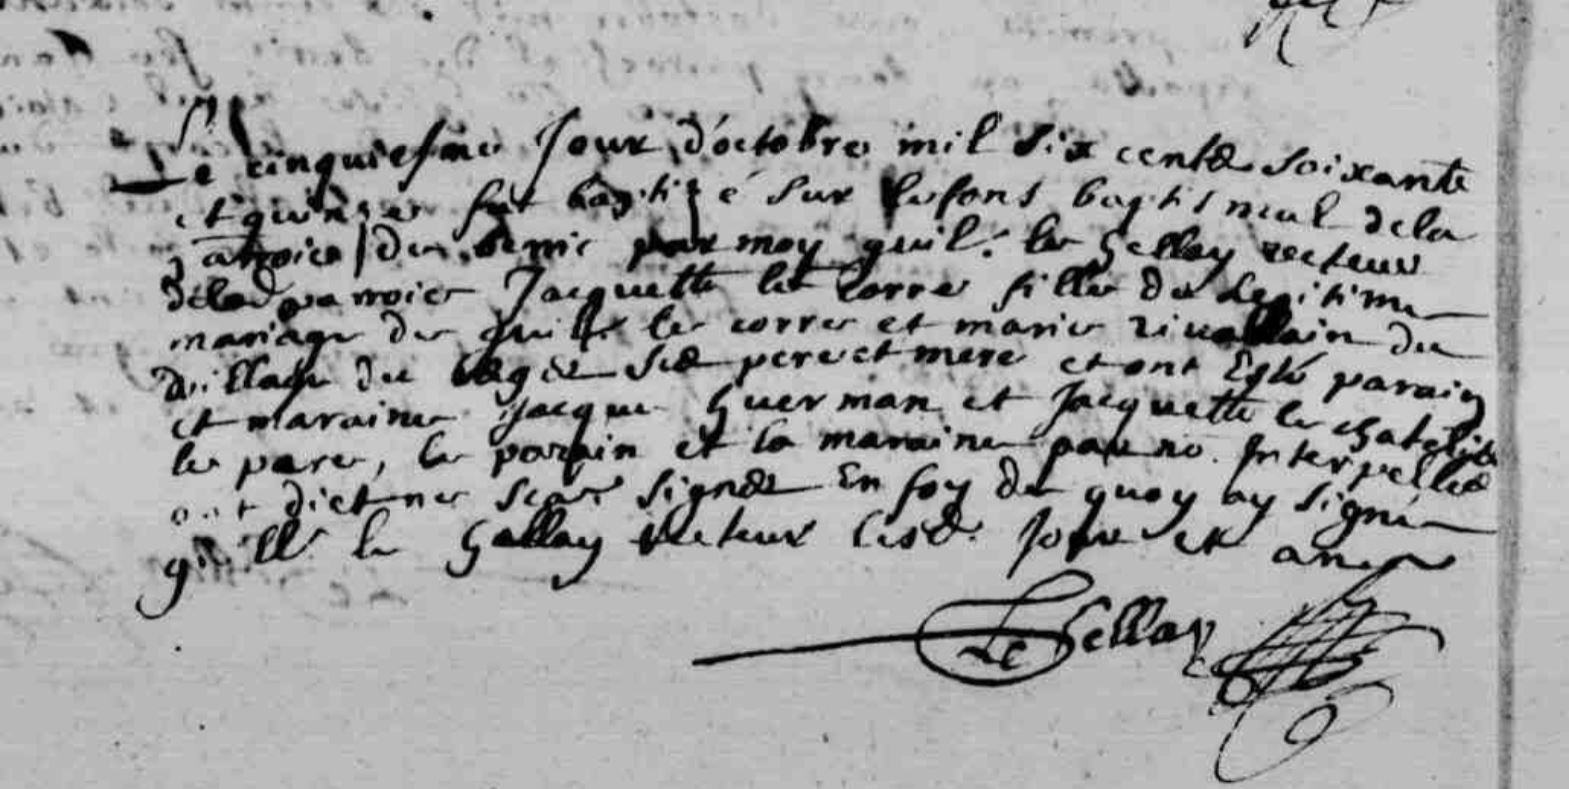 Le cinquiesme Jour d'octobre mil six cents soixante
et quinze fut baptizé sur les fons baptismal de la
paroice de par moy guil. le Gellay recteur
de lad paroice Jacquette le Corre fille du Legitime
mariage de guill. le corre et marie rivallain du
village du ses pere et mere et ont Esté parain
et maraine Jacque Guerman et Jacquette le
le pere, le parain et la maraine par no. Interpelles
ont dict ne scav signer En foy de quoy ay signé
guill. le Gellay recteur lesd. Jour et an
Le Gellay